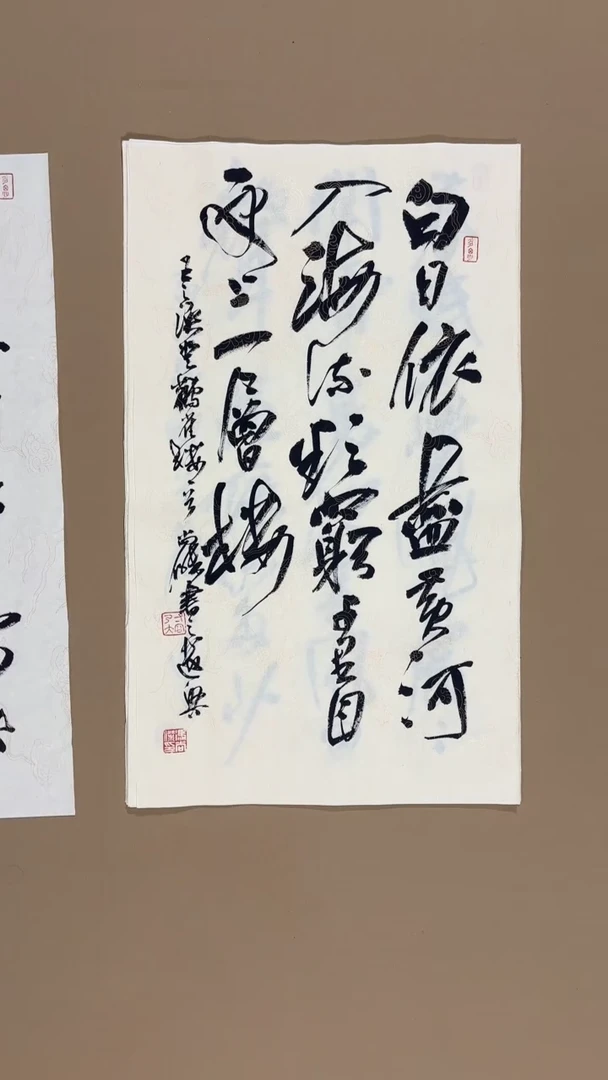 白日依山盡黃河
入海流欲窮千里目
更上一層樓
王之渙登鸛雀樓一首 書之遣興